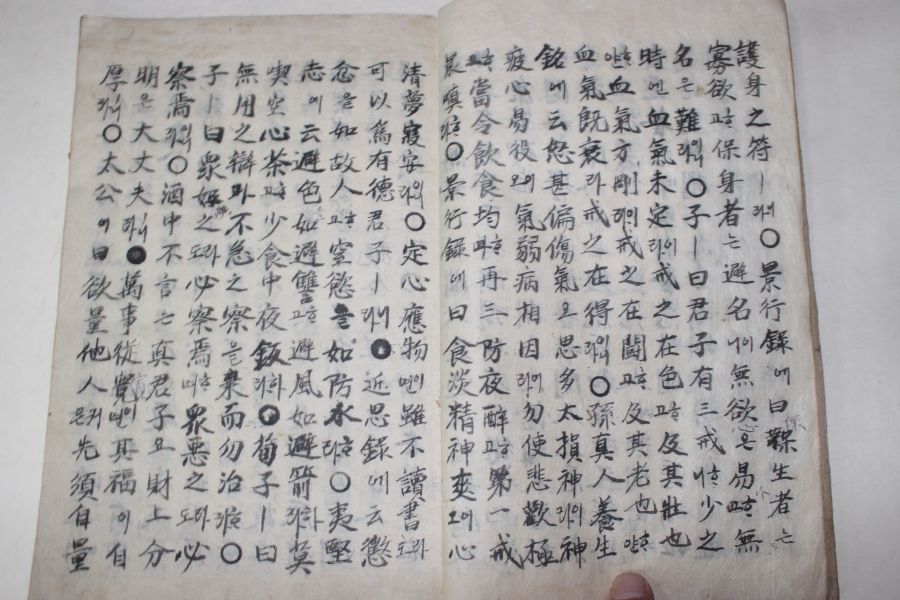 護身之符ㅣ라니○景行錄에曰保生者는
寡欲고保身者는避名이니無欲은易며無
名은難라○子ㅣ曰君子有三戒니少之
時엔血氣未定라이戒之在色고及其壯也
얀血氣方剛라이戒之在鬪고及其老也얀
血氣既衰라戒之在得라이○孫真人養生
銘에云怒甚偏傷氣오思多太損神라이神
疲心易役오이氣弱病相因라이勿使悲歡極
고當令飮食均며再三防夜醉고第一戒
晨嗔라○景行錄에曰食淡精神爽오이心
清夢寐安라이○定心應物면이雖不讀書도라
可以爲有德君子ㅣ라니●近思錄에云懲
忿을如故人고窒慾을如防水라○夷堅
志에云避色如避讐고避風如避箭라하莫
喫空心茶고少食中夜飯라하●荀子ㅣ曰
無用之辯과不急之察을棄而勿治라○
子ㅣ曰衆好之도라必察焉며衆惡之도라必
察焉라이니○酒中不言는真君子오財上分
明은大丈夫라니●萬事從寬면이其福이自
厚라니○太公이曰欲量他人든커先須自量